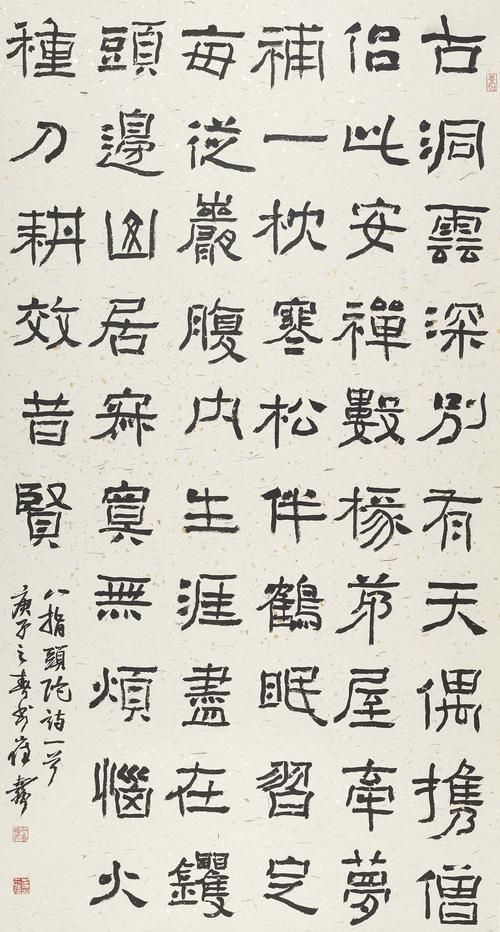 古洞雲深別有天偶携僧
侶此安禪數椽茅屋牽夢
補一枕寒松伴鶴眠習定
每從巖腹内生涯盡在钁
頭邊山居寂寞無煩惱火
種刀耕效昔賢
八指頭陀詩一首
庚子之春書